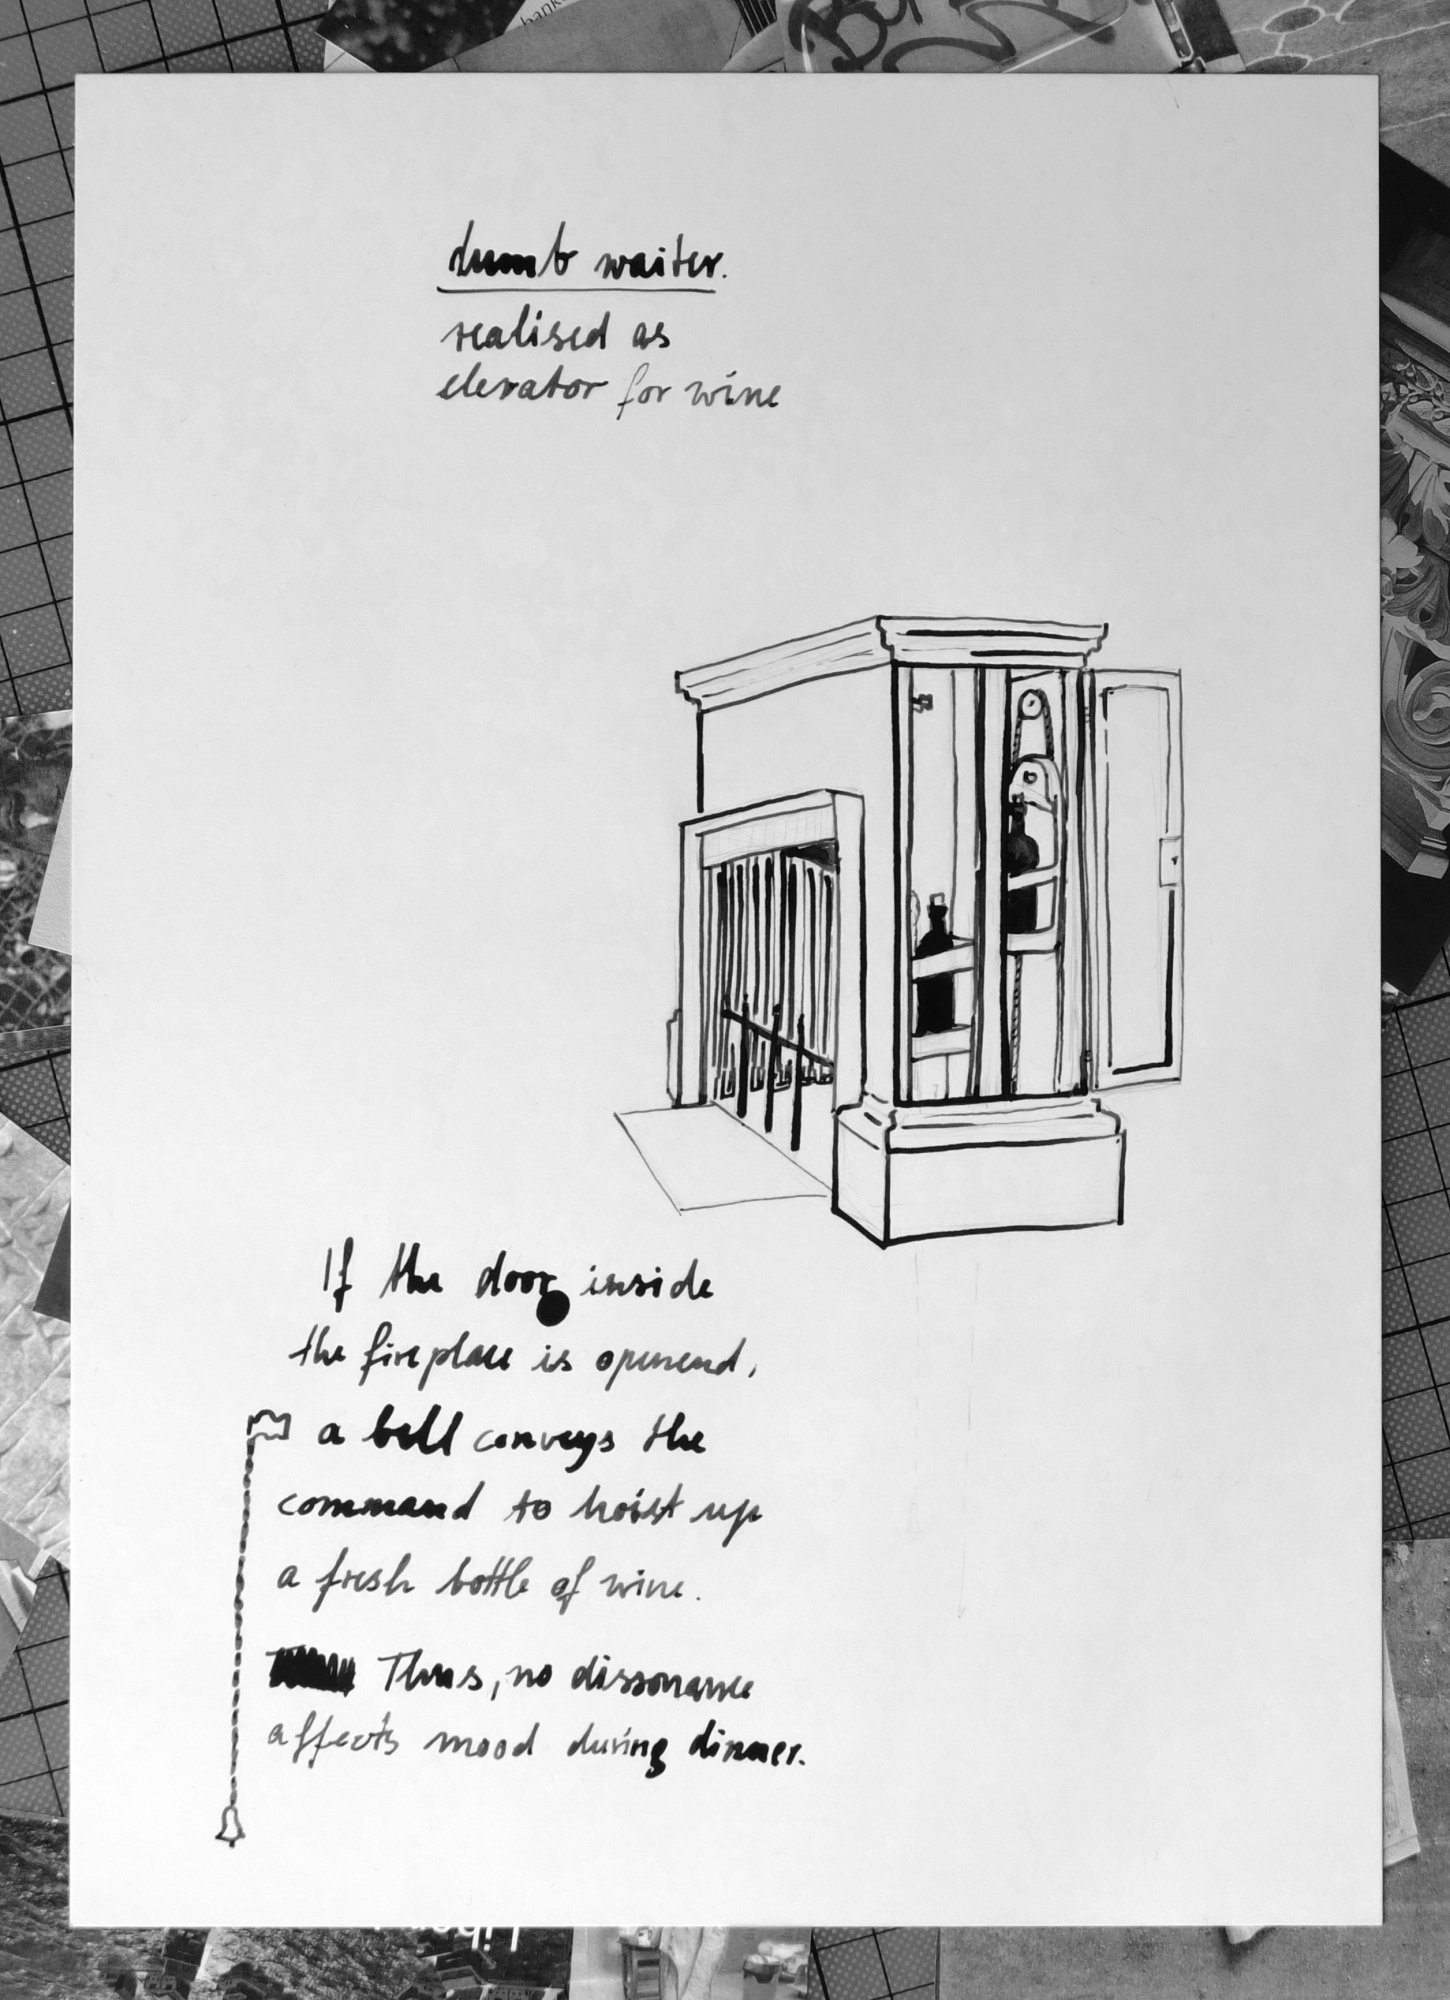 bank
dumb waiter.
realised as
elevator for wine
If the door inside
the fireplace is openend,
a bell conveys the
command to hoist up
a fresh bottle of wine.
Thus, no dissonance
affects mood during dinner.